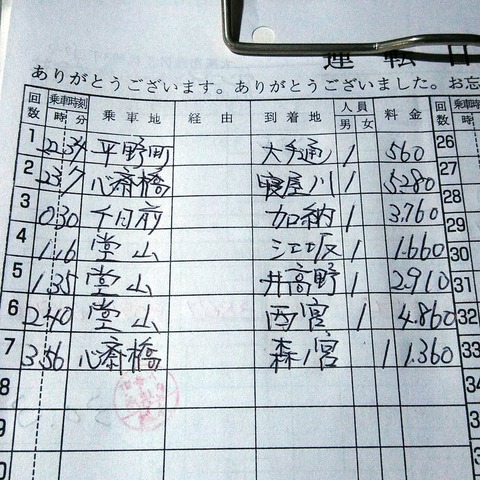 運 転 日
ありがとうございます。ありがとうございました。お忘
回数 乗車時刻 時 分 乗 車 地 経 由 到 着 地 人 員 男 女 料 金 乗車時
1 22 34 平野町 大手通 1 560 26
2 23 7 心斎橋 寝屋川 1 5280 27
3 0 30 千日前 加納 1 3.760 28
4 1 16 堂山 江坂 1 1.660 29
5 1 35 堂山 井高野 1 2910 30
6 2 40 堂山 西宮 1 4.860 31
7 3 56 心斎橋 森ノ宮 1 1.360 32
8 33
9